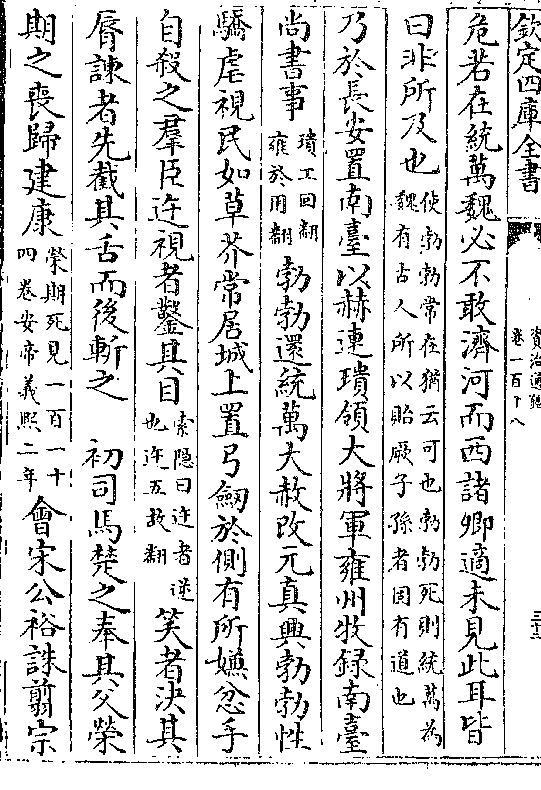 欽定四庫全書
資治通鑑
卷一百十八
三十三
危若在統萬魏必不敢濟河而西諸卿適未見此耳皆
曰非所及也
使勃勃常在猶云可也勃勃死則統萬為
魏有古人所以貽厥子孫者固有道也
乃於長安置南臺以赫連璝領大將軍雍州牧録南臺
尚書事
璝工回翻
雍於用翻
勃勃還統萬大赦改元真興勃勃性
驕虐視民如草芥常居城上置弓劒於側有所嫌忿手
自殺之羣臣迕視者鑿其目
索隐曰迕者逆
也迕五故翻
笑者決其
脣諫者先截其舌而後斬之 初司馬楚之奉其父榮
期之喪歸建康
榮期死見一百一十
四卷安帝義熙二年
會宋公裕誅翦宗